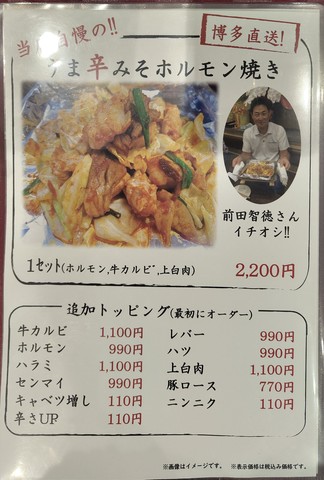 当 自慢の!!
博多直送!
うま辛みそホルモン焼き
前田智徳さん
イチオシ!!
1セット(ホルモン,牛カルビ,上白肉) 2,200円
追加トッピング(最初にオーダー)
牛カルビ 1,100円
ホルモン 990円
ハラミ 1,100円
センマイ 990円
キャベツ増し 110円
辛さUP 110円
レバー 990円
ハツ 990円
上白肉 1,100円
豚ロース 770円
ニンニク 110円
※画像はイメージです。 ※表示価格は税込み価格です。